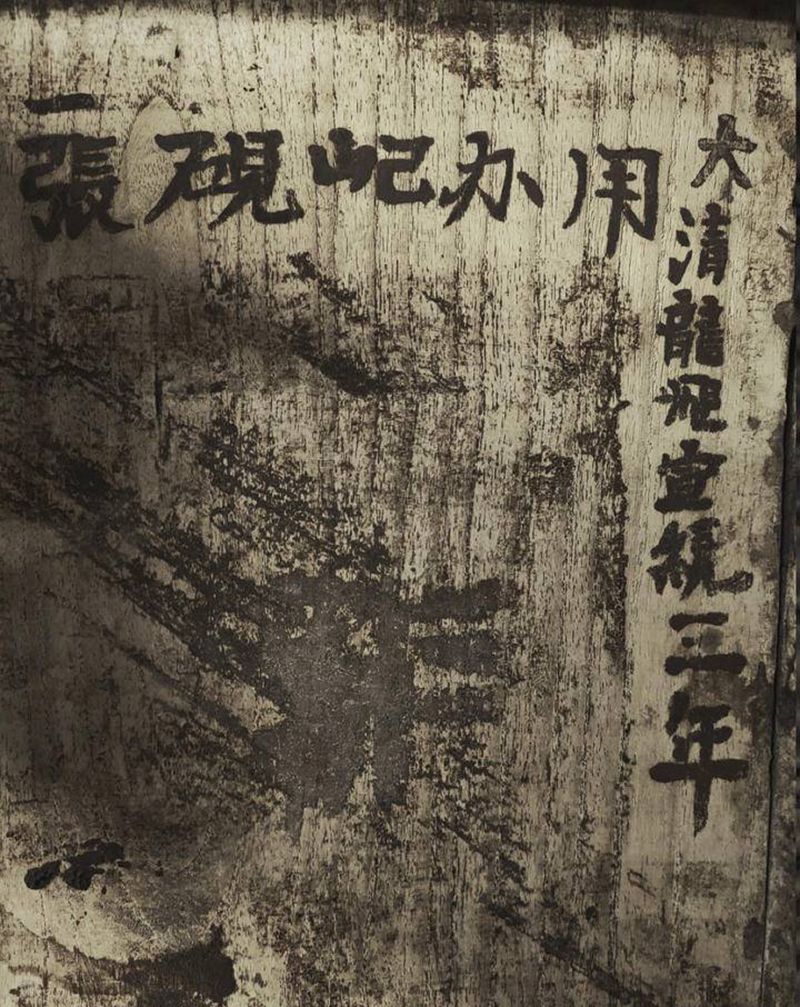 大清龍飛宣統三年
一
張硯屺办用